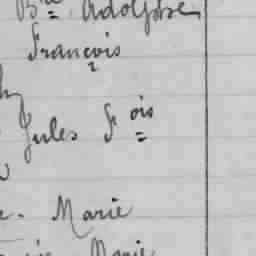 Bte Adolphe
François
Jules Fois
Marie
Marie